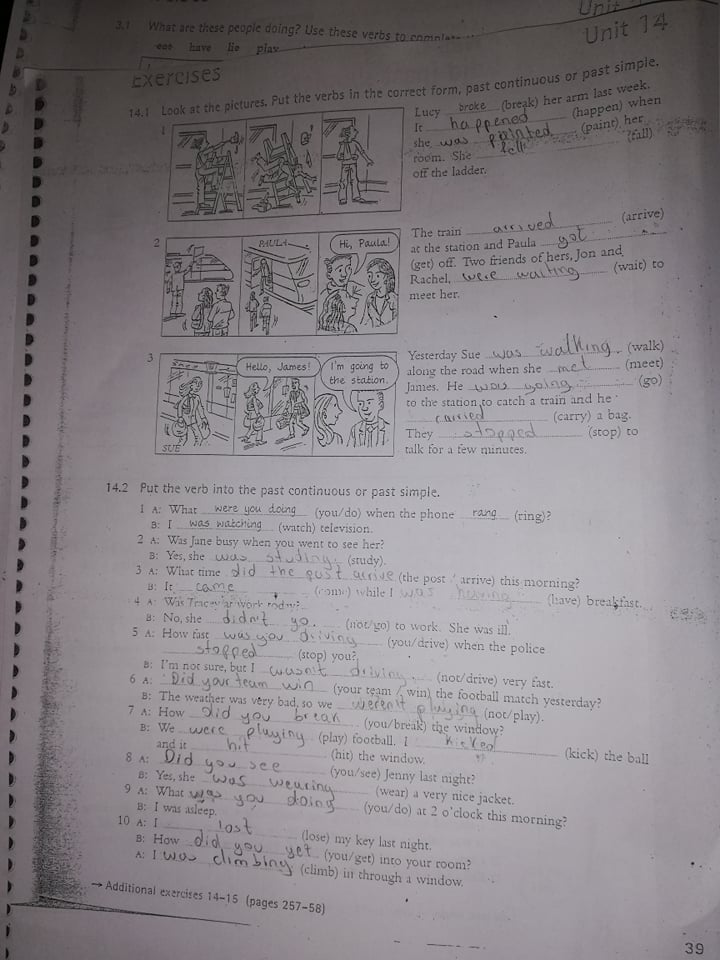 3.1 What are these people doing? Use these verbs to
eat have lie play
Unit
Unit 14
Exercises
14.1 Look at the pictures. Put the verbs in the correct form, past continuous or past simple.
1
Lucy broke (break) her arm last week.
It happened (happen) when
she was painted (paint) her
room. She fell (fall)
off the ladder.
2
PAULA
Hi, Paula!
The train arrived (arrive)
at the station and Paula got
(get) off. Two friends of hers, Jon and
Rachel, were waiting (wait) to
meet her.
3
SUE
Hello, James!
I'm going to
the station.
Yesterday Sue was walking (walk)
along the road when she met (meet)
James. He was going (go)
to the station to catch a train and he
carried (carry) a bag.
They stopped (stop) to
talk for a few minutes.
14.2 Put the verb into the past continuous or past simple.
1 A: What were you doing (you/do) when the phone rang (ring)?
B: I was watching (watch) television.
2 A: Was Jane busy when you went to see her?
B: Yes, she was (study).
3 A: What time did the post arrive (the post / arrive) this morning?
B: It came (come) while I was having (have) breakfast.
4 A: Was Tracey at work today?
B: No, she didn't go (not/go) to work. She was ill.
5 A: How fast was you driving (you/drive) when the police
stopped (stop) you?
B: I'm not sure, but I wasn't driving (not/drive) very fast.
6 A: Did your team win (your team / win) the football match yesterday?
B: The weather was very bad, so we weren't playing (not/play).
7 A: How did you break (you/break) the window?
B: We were playing (play) football. I kicked (kick) the ball
and it hit (hit) the window.
8 A: Did you see (you/see) Jenny last night?
B: Yes, she was wearing (wear) a very nice jacket.
9 A: What was you doing (you/do) at 2 o'clock this morning?
B: I was asleep.
10 A: I lost (lose) my key last night.
B: How did you get (you/get) into your room?
A: I was climbing (climb) in through a window.
→ Additional exercises 14–15 (pages 257–58)
39